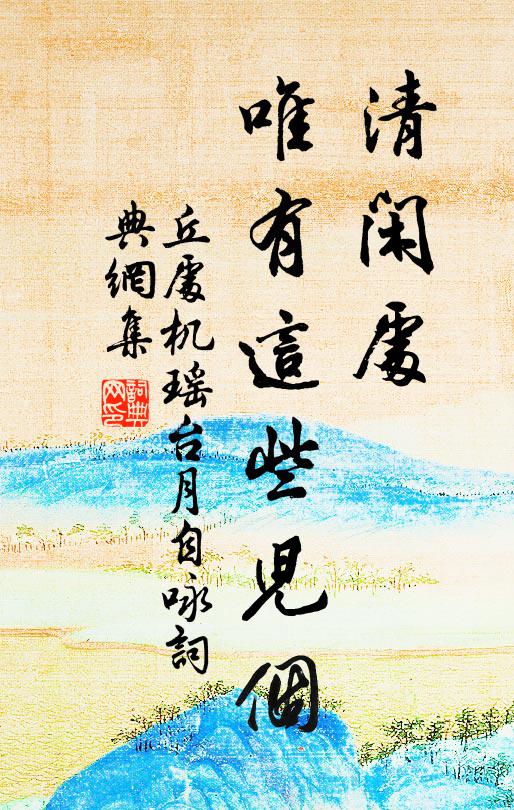 清閑處
唯有這些兒個
丘處机瑶台月自咏詞
典網集
詞典
网印